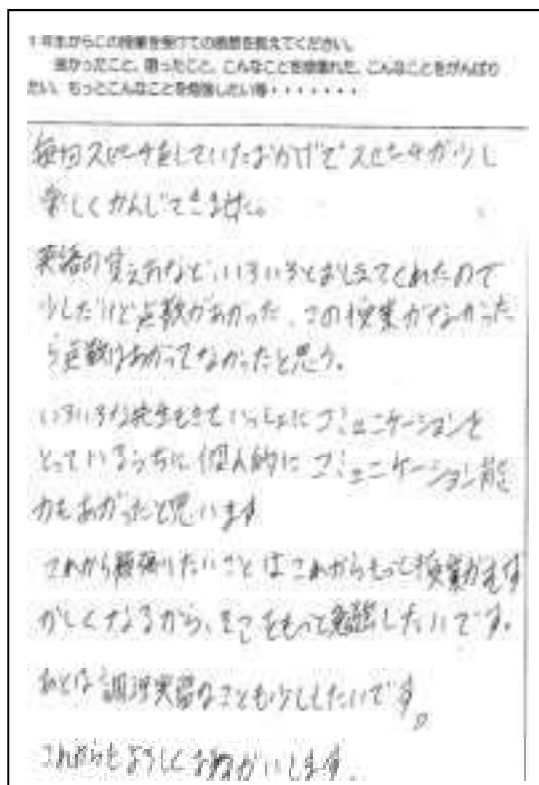 1年生からこの授業を受けての感想を教えてください。
良かったこと、困ったこと、こんなことを頑張れた、こんなことをがんばり
たい、もっとこんなことを勉強したい等・・・・・・・
毎日スピーチをしていたおかげでスピーチが少し
楽しくかんじてきました。
英語の覚え方などいろいろとおしえてくれたので
少しだけど点数があがった、この授業がなかった
ら点数はあがってなかったと思う。
いろいろな先生もきていっしょにコミュニケーションを
とっているうちに個人的にコミュニケーション能
力もあがったと思います
これから頑張りたいことはこれからもっと授業がむず
かしくなるから、そこをもっと勉強したいです。
あとは調理実習なことも少ししたいです。
これからもよろしくおねがいします。